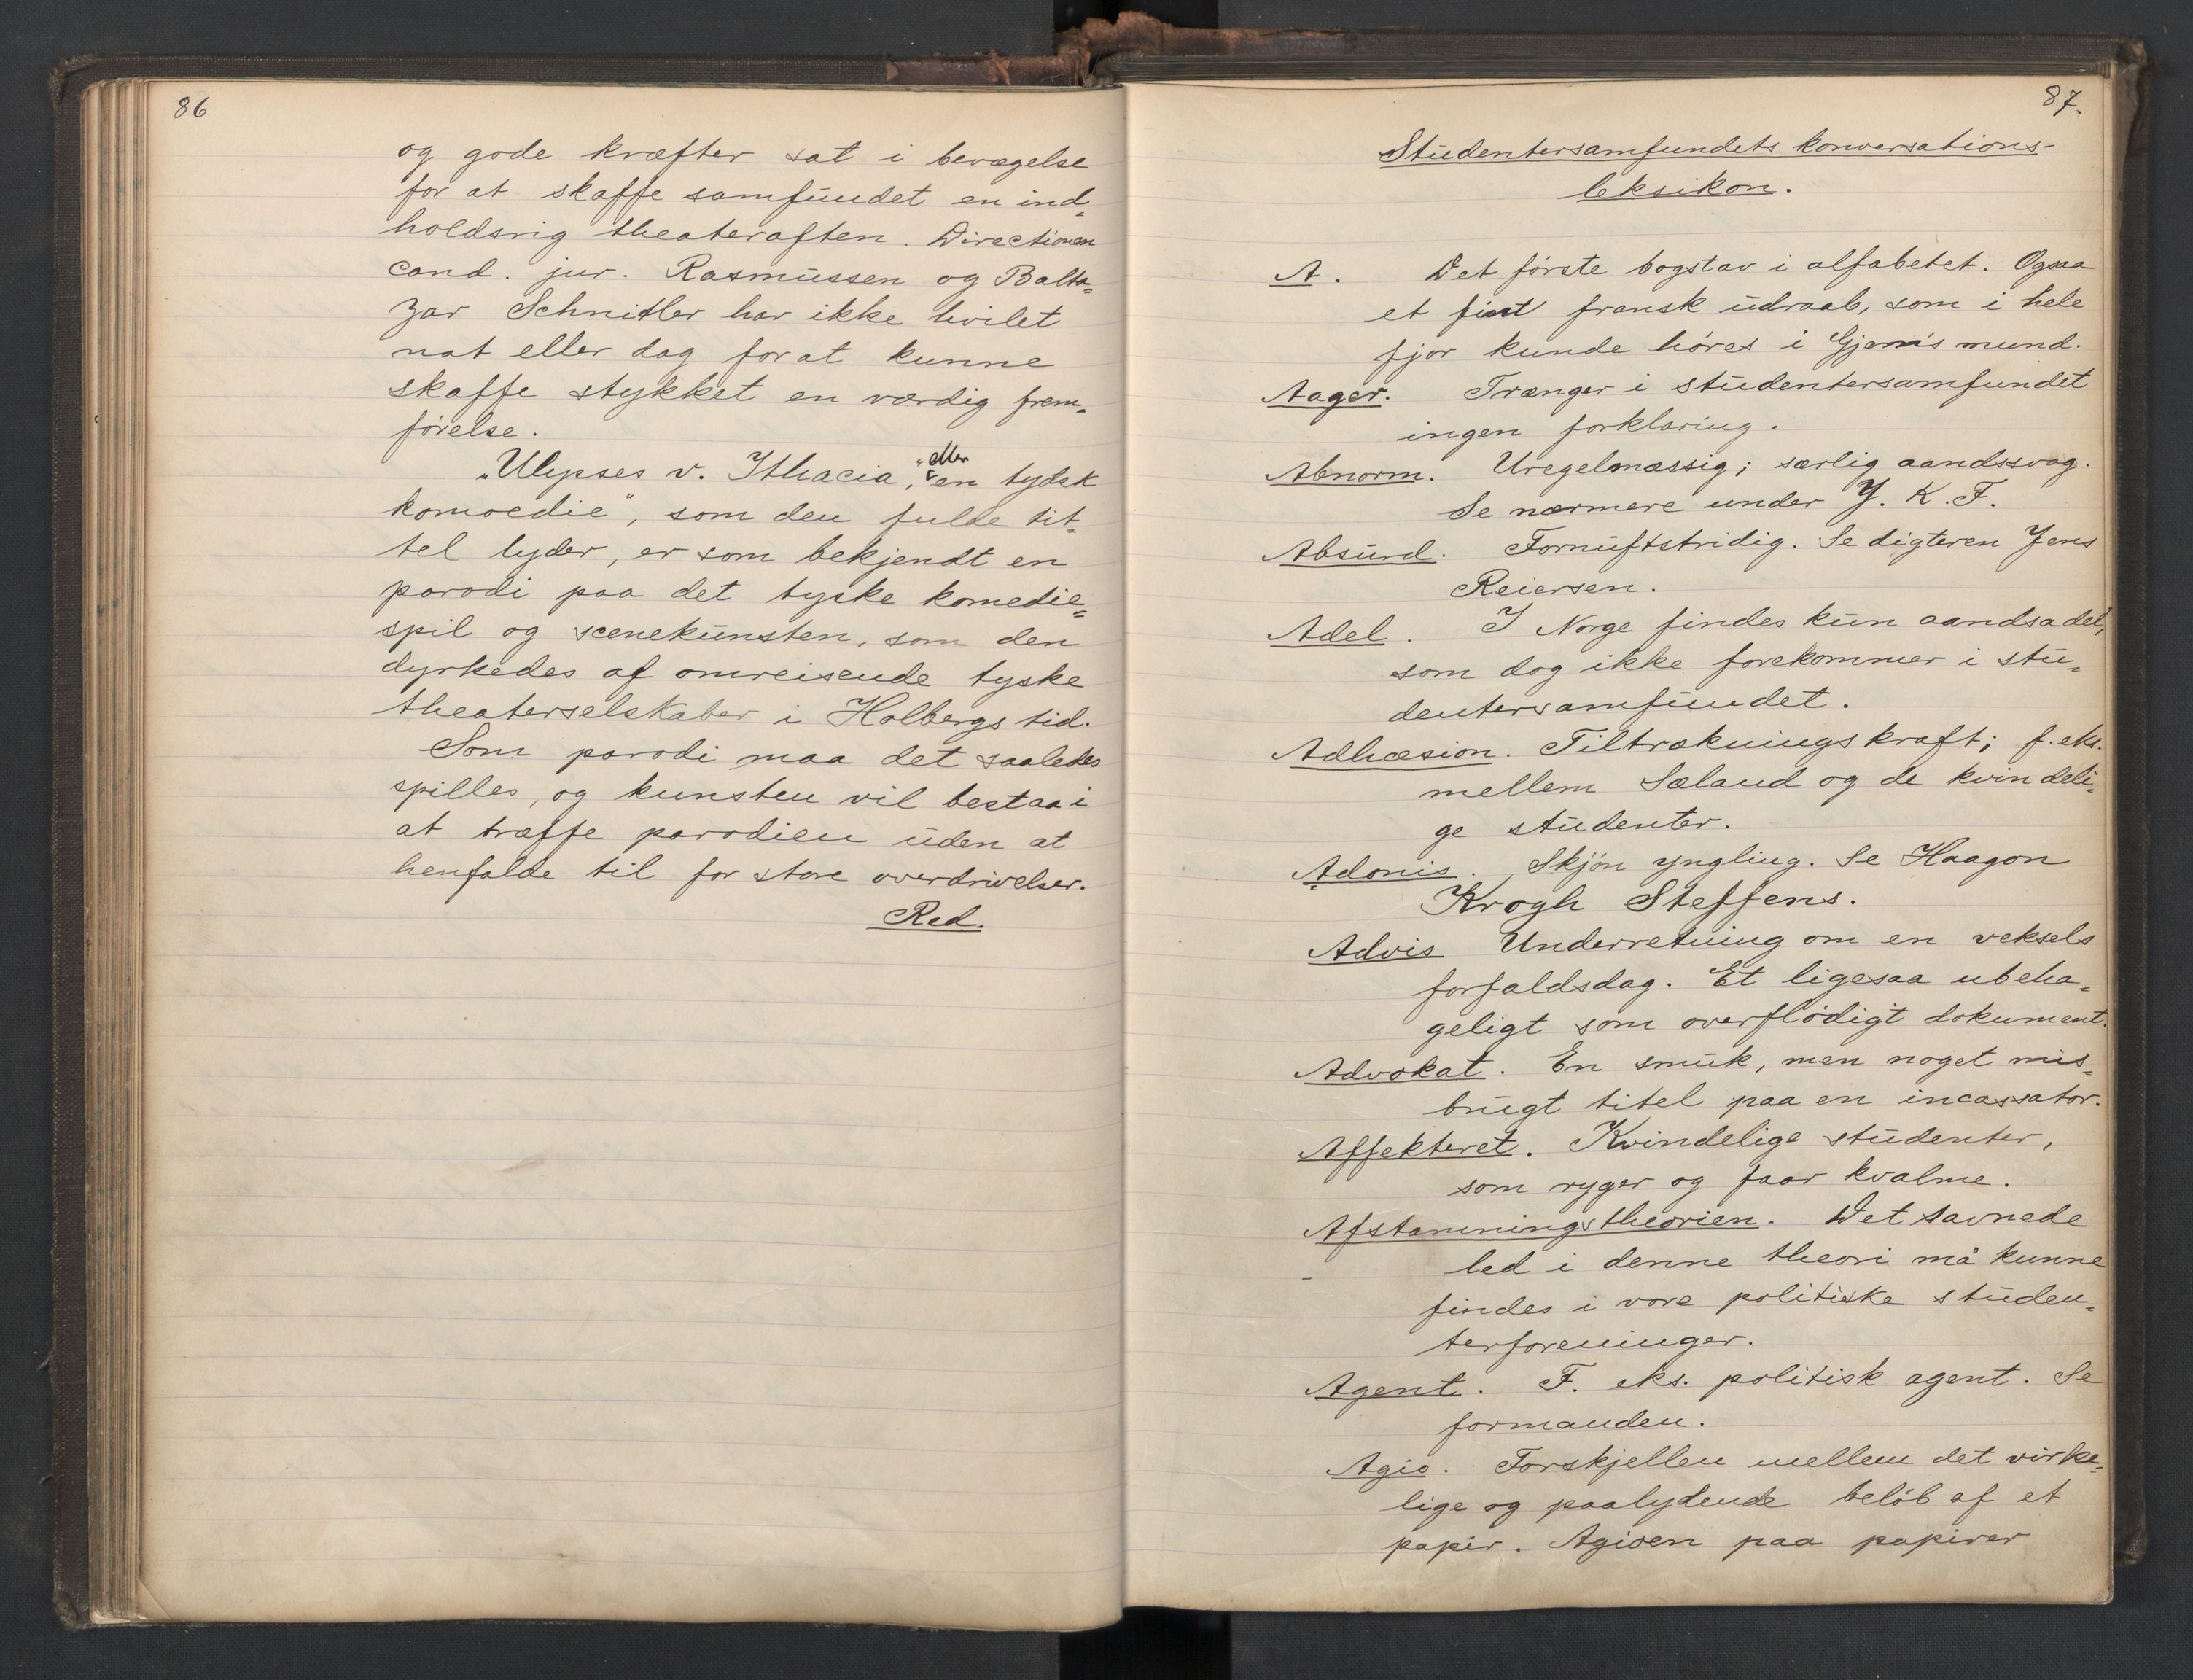 86
og gode kræfter sat i bevægelse
for at skaffe samfundet en ind=
holdsrig theateraften. Directionen
cand. jur. Rasmussen og Balta=
zar Schnitler har ikke hvilet
nat eller dag for at kunne
skaffe stykket en værdig frem=
førelse.
„Ulysses v. Ithacia," eller „en tydsk
komoedie", som den fulde tit=
tel lyder, er som bekjendt en
parodi paa det tyske komedie=
spil og scenekunsten, som den
dyrkedes af omreisende tyske
theaterselskaber i Holbergs tid.
Som parodi maa det saaledes
spilles, og kunsten vil bestaa i
at træffe parodien uden at
henfalde til for store overdrivelser.
Red.
87.
Studentersamfundets konversations-
leksikon.
A. Det første bogstav i alfabetet. Ogsaa
et fint fransk udraab, som i hele
fjor kunde høres i Gjem's mund.
Aager. Trænger i studentersamfundet
ingen forklaring.
Abnorm. Uregelmæssig; særlig aandssvag.
Se nærmere under J. K. F.
Absurd. Fornuftstridig. Se digteren Jens
Reiersen.
Adel. I Norge findes kun aandsadel,
som dog ikke forekommer i stu=
dentersamfundet.
Adhæsion. Tiltrækningskraft; f. eks.
mellem Sæland og de kvindeli=
ge studenter.
Adonis. Skjøn yngling. Se Haagon
Krogh Steffens.
Advis Underretning om en veksels
forfaldsdag. Et ligesaa ubeha=
geligt som overflødigt dokument.
Advokat. En smuk, men noget mis=
brugt titel paa en incassator.
Affekteret. Kvindelige studenter,
som ryger og faar kvalme.
Afstamningstheorien. Det savnede
led i denne theori må kunne
findes i vore politiske studen=
terforeninger.
Agent. F. eks. politisk agent. Se
formanden.
Agio. Forskjellen mellem det virke=
lige og paalydende beløb af et
papir. Agioen paa papirer